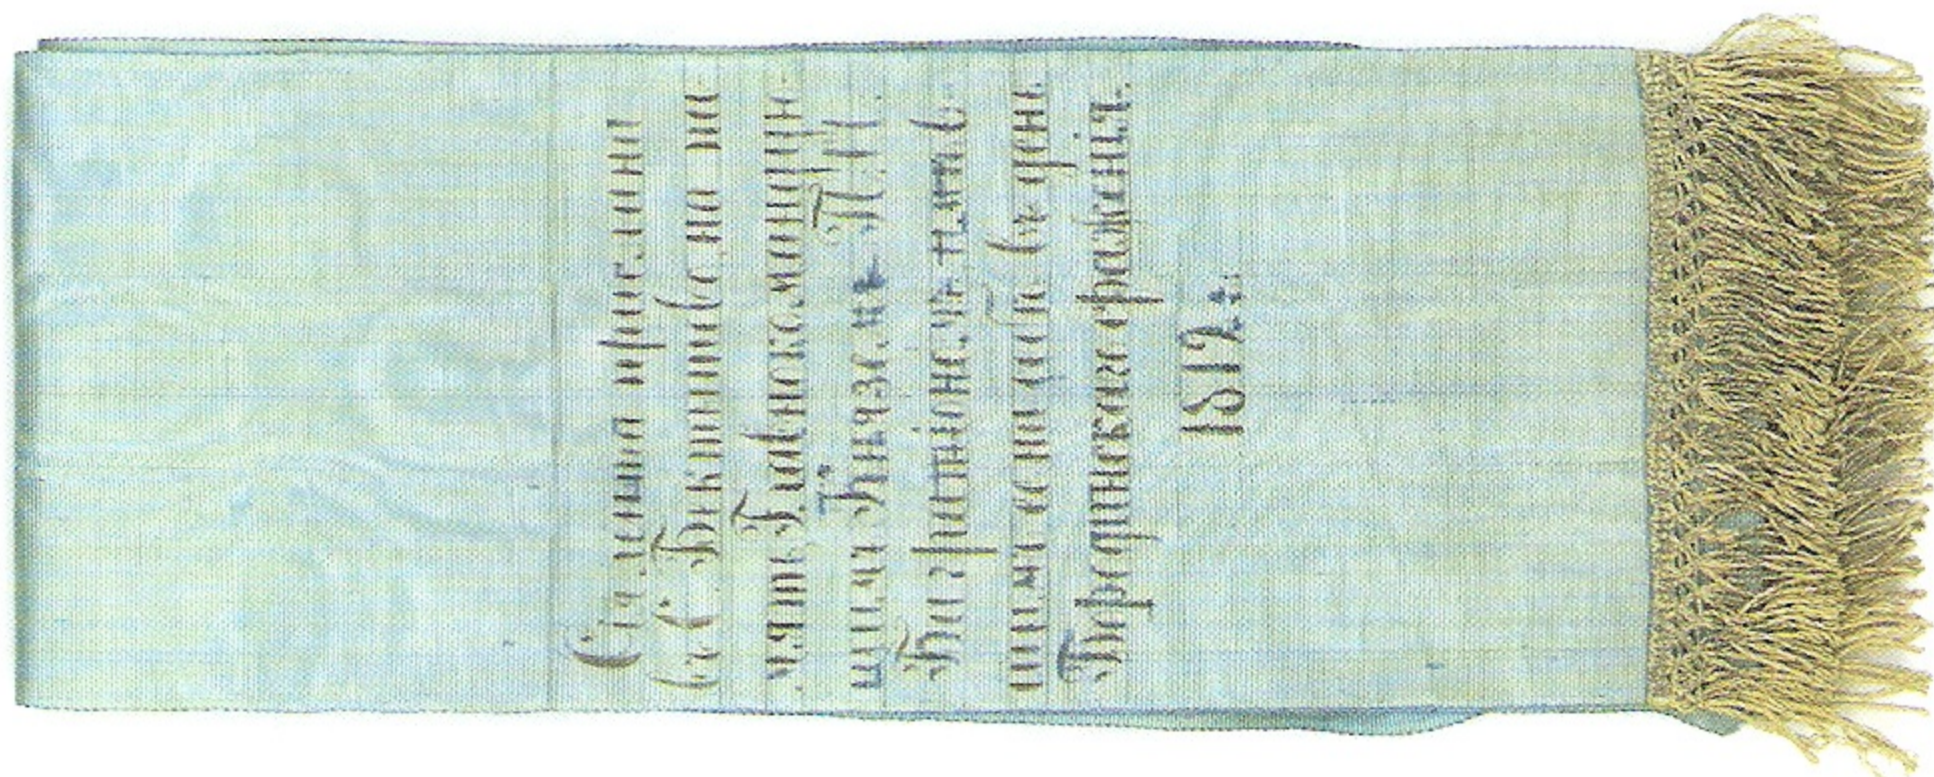 Сія лента прислана
въ С. Бектышево на па
мять Главнокомандую
щимъ Княземъ П. И.
Багратіономъ
въ день
Бородинскаго сраженія.
1812 г.